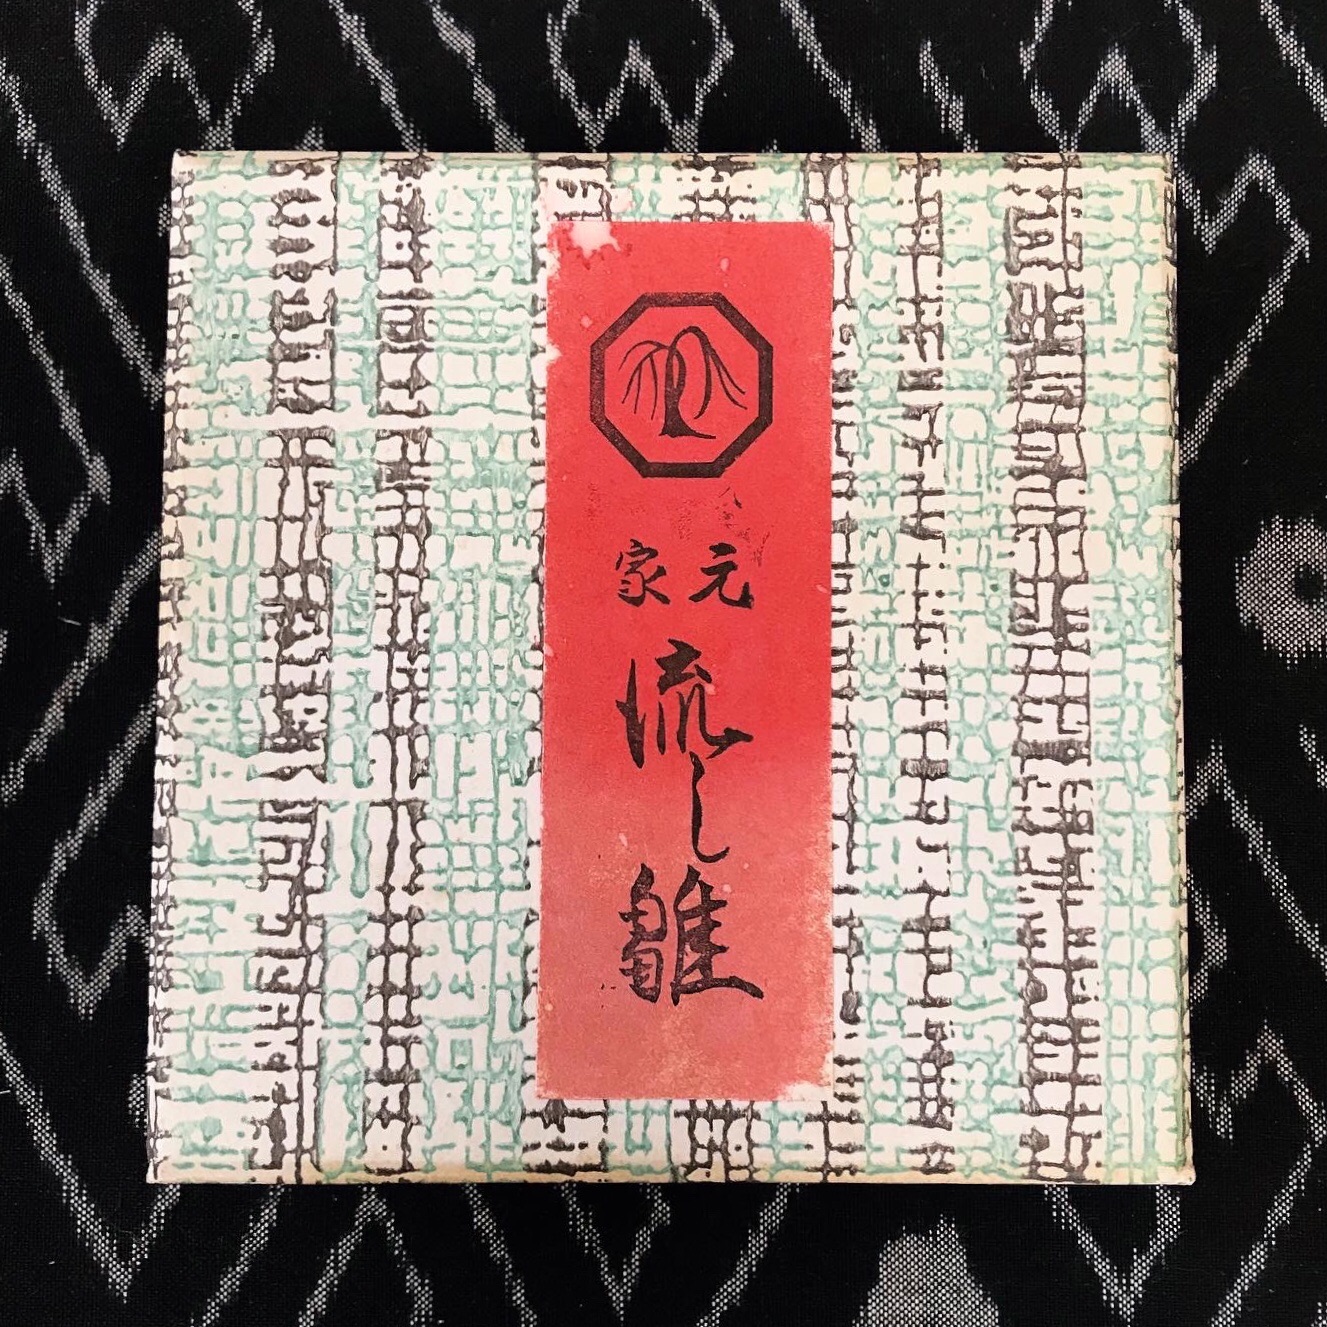 元家
流し雛